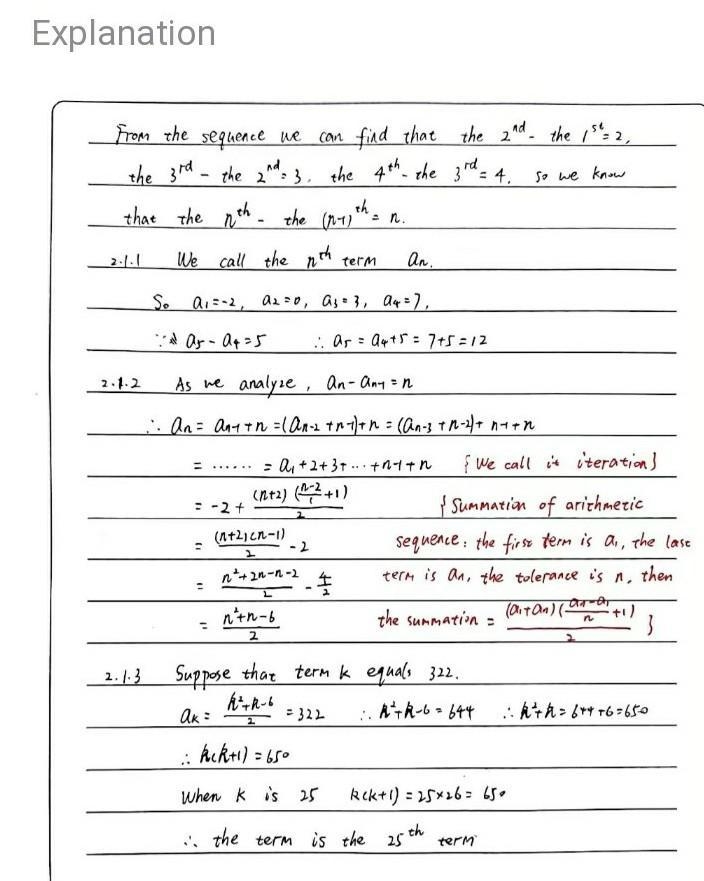 Explanation
From the sequence we can find that the 2nd - the 1st = 2,
the 3rd - the 2nd = 3. the 4th - the 3rd = 4. so we know
that the nth - the (n-1)th = n.
2.1.1 We call the nth term an.
So a1=-2, a2=0, a3=3, a4=7,
∵ a5-a4=5 ∴ a5=a4+5=7+5=12
2.1.2 As we analyze, an-an-1=n
∴ an=an-1+n=(an-2+n-1)+n=(an-3+n-2)+n-1+n
= ...... = a1+2+3+...+n-1+n {We call it iteration}
= -2+ (n+2)((n-2)/1+1)/2 {Summation of arithmetic
= (n+2)(n-1)/2 - 2 sequence: the first term is a1, the last
= n²+2n-n-2/2 - 4/2 term is an, the tolerance is n, then
= n²+n-6/2 the summation = (a1+an)((an-a1)/n+1)/2 }
2.1.3 Suppose that term k equals 322.
ak= k²+k-6/2 =322 ∴ k²+k-6=644 ∴ k²+k=644+6=650
∴ k(k+1)=650
When k is 25 k(k+1)=25×26=650
∴ the term is the 25th term